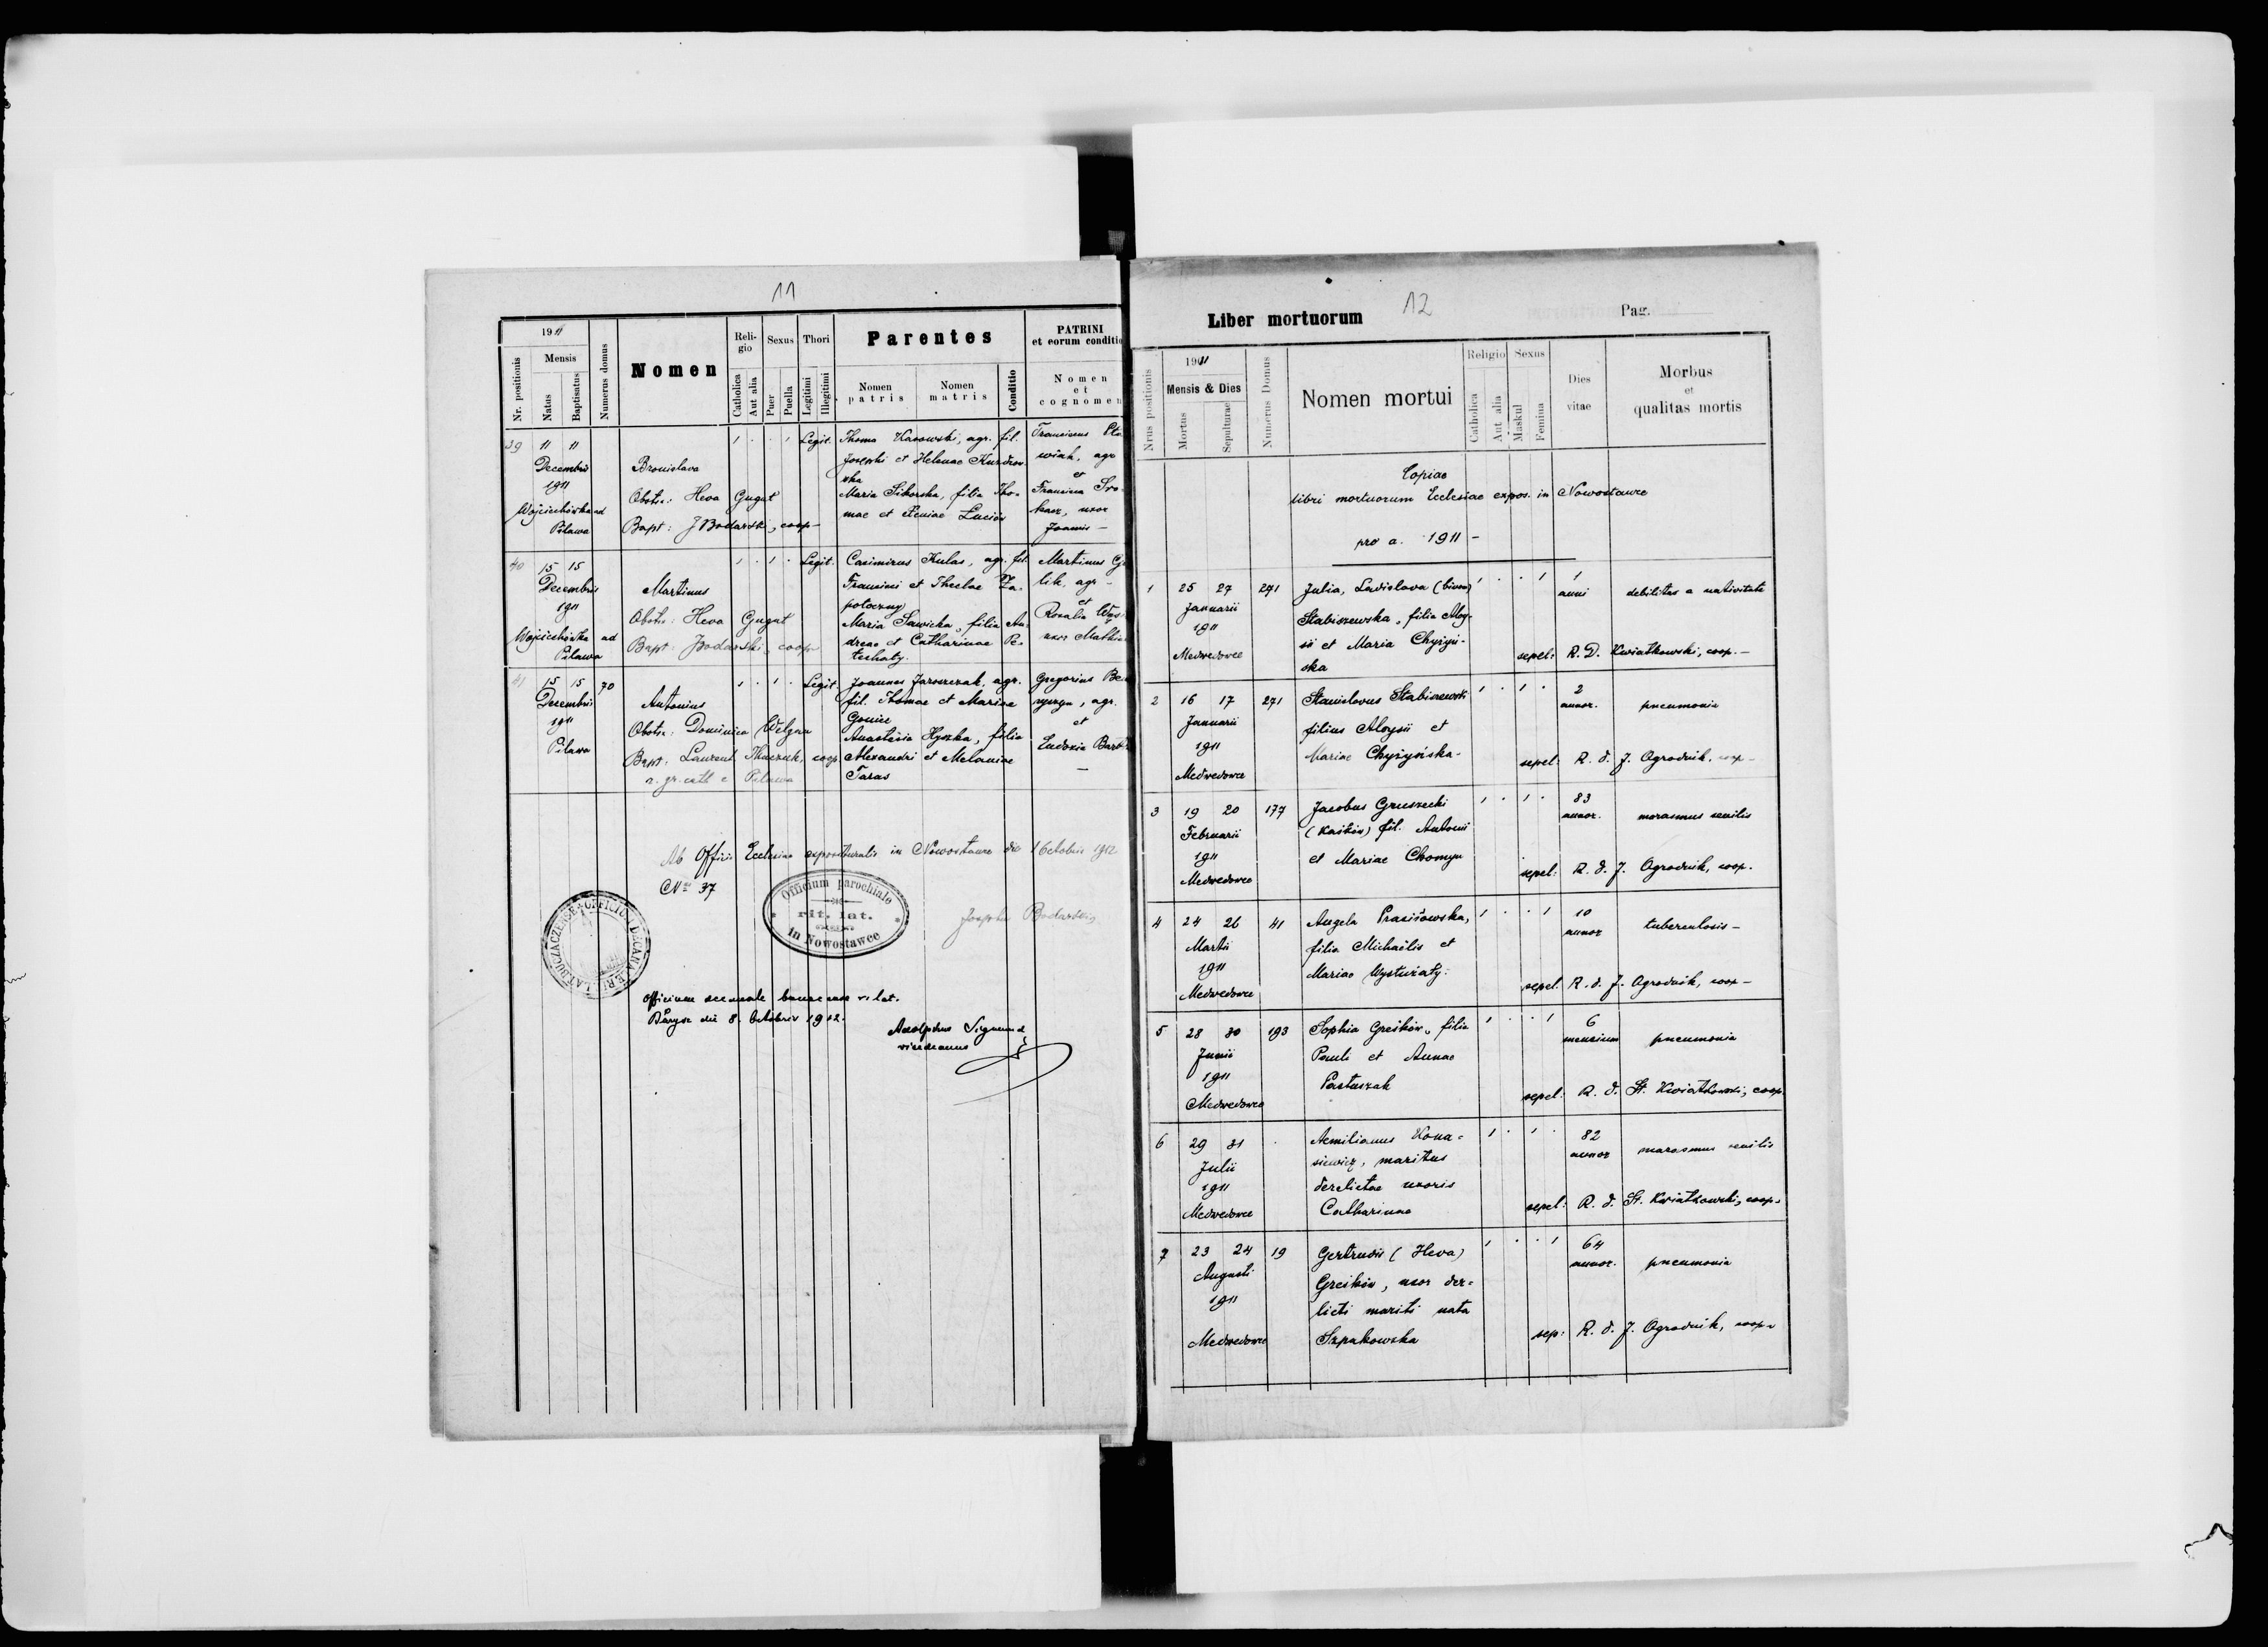 11
1911
Nr. positionis
Mensis
Natus
Baptisatus
Numerus domus
Nomen
Religio
Catholica
Aut alia
Sexus
Puer
Puella
Thori
Legitimi
Illegitimi
Parentes
Nomen patris
Nomen matris
Conditio
PATRINI
et eorum conditio
Nomen
et
cognomen
39 11 11
Decembris
1911
Wojciechówka ad
Pilawa
Bronislava
Obstr.: Heva Gugut
Bapt: J Bodarski, coop
Legit.
Thoma Kasowski, agr. fil.
Josephi et Helenae
Maria Sikorska, filia Tho-
mae et Luciów
Franciscus
wiak, agr
et
Francisca
uxor
Joannis -
40 15 15
Decembris
1911
Wojciechówka ad
Pilawa
Martinus
Obstr: Heva Gugut
Bapt: J Bodarski, coop
Legit.
Casimirus Kulas, agr. fil.
Francisci et Theclae Za-
potoczny
Maria Sawicka, filia An-
dreae et Catharinae Pe-
techaty.
Martinus
lik, agr -
et
Rosalia
uxor Mathiae
41 15 15 70
Decembris
1911
Pilawa
Antonius
Obstr: Dominica Welgan
Bapt: Laurent. Tkaczuk, coop
r. gr. cath e Pilawa
Legit.
Joannes Jaroszczak, agr.
fil. Thomae et Mariae
Anastasia Hyszka, filia
Alexandri et Melaniae
Taras
Gregorius
agr.
et
Eudoxia
-
Ab Officio Ecclesiae exposituralis in Nowostawce die 1 Octobris 1912
Nro 37
OFFICIUM DECANALE RIT. LAT. BUCZACZENSE
Officium parochiale
rit. lat.
in Nowostawce
Josephus Bodarski
Officium decanale bucz. r. lat.
Barysz die 8. Octobris 1912.
Adolphus Sigmund
vicedecanus
Liber mortuorum
12
Pag.
Nrus positionis
1911
Mensis & Dies
Mortus
Sepulturae
Numerus Domus
Nomen mortui
Religio
Catholica
Aut alia
Sexus
Maskul
Femina
Dies
vitae
Morbus
et
qualitas mortis
Copiae
libri mortuorum Ecclesiae expos. in Nowostawce
pro a. 1911 -
1 25 27 271
Januarii
1911
Medwedowce
Julia, Ladislava (binom)
Stabiszewska, filia Aloy-
sii et Maria Chyżyń-
ska
1
anni
debilitas a nativitate
sepel: R. D. Kwiatkowski, coop. -
2 16 17 271
Januarii
1911
Medwedowce
Stanislavus Stabiszewski
filius Aloysii et
Mariae Chyżyńska -
2
annor.
pneumonia
sepel: R. d. J. Ogrodnik, coop -
3 19 20 177
Februarii
1911
Medwedowce
Jacobus Gruszecki
fil. Antonii
et Mariae Chomyn
83
annor.
marasmus senilis
sepel: R. d. J. Ogrodnik, coop.
4 24 26 41
Martii
1911
Medwedowce
Angela
filia Michaëlis et
Mariae
10
annor
tuberculosis -
sepel. R. d. J. Ogrodnik, coop -
5 28 30 193
Junii
1911
Medwedowce
Sophia Greśków, filia
Pauli et Annae
Pastuszak
6
mensium
pneumonia
sepel: R. d. St. Kwiatkowski, coop.
6 29 31
Julii
1911
Medwedowce
Aemilianus Kona-
siewicz, maritus
derelictae uxoris
Catharinae
82
annor
marasmus senilis
sepel: R. d. St. Kwiatkowski, coop.
7 23 24 19
Augusti
1911
Medwedowce
Gertrudis (Heva)
Greśków, uxor der-
licti mariti nata
Szpakowska
64
annor.
pneumonia
sep: R. d. J. Ogrodnik, coop.